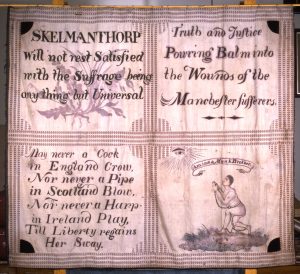 SKELMANTHORP
Will not rest Satisfied
with the Suffrage being
any thing but Universal
Truth and Justice
Pouring Balm into
the Wounds of the
Manchester Sufferers.
May never a Cock
in England Crow,
Nor never a Pipe
in Scotland Blow,
Nor never a Harp
in Ireland Play,
Till Liberty regains
Her Sway.
a Man & Brother